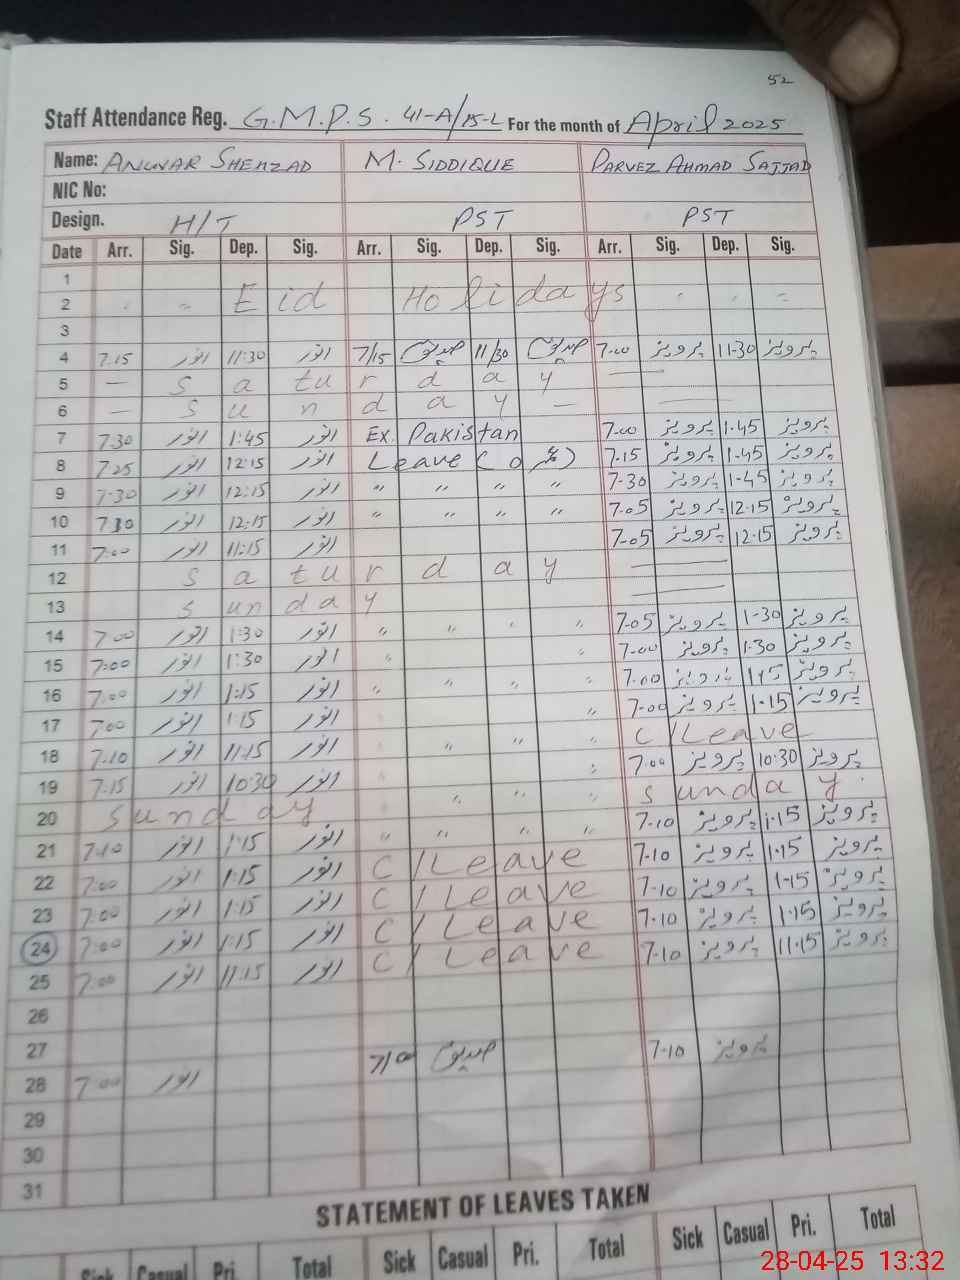 52
Staff Attendance Reg. G.M.P.S. 41-A/15-L For the month of April 2025
Name: ANWAR SHEHZAD M. SIDDIQUE PARVEZ AHMAD SAJJAD
NIC No:
Design. H/T PST PST
Date Arr. Sig. Dep. Sig. Arr. Sig. Dep. Sig. Arr. Sig. Dep. Sig.
1
2 Eid Holidays
3
4 7.15 انور 11:30 انور 7/15 صدیق 11/30 صدیق 7.00 پرویز 11.30 پرویز
5 — Saturday
6 — Sunday —
7 7.30 انور 1:45 انور Ex. Pakistan 7.00 پرویز 1.45 پرویز
8 7.25 انور 12:15 انور Leave ( 7.15 پرویز 1.45 پرویز
9 7.30 انور 12:15 انور " " " " 7-30 پرویز 1.45 پرویز
10 7.30 انور 12:15 انور " " " " 7.05 پرویز 12.15 پرویز
11 7.00 انور 11:15 انور 7.05 پرویز 12.15 پرویز
12 Saturday
13 Sunday
14 7.00 انور 1:30 انور " " " " 7.05 پرویز 1-30 پرویز
15 7:00 انور 1:30 انور " " 7.00 پرویز 1.30 پرویز
16 7.00 انور 1:15 انور " " " " 7.00 پرویز پرویز
17 7.00 انور 1:15 انور " 7.00 پرویز 1.15 پرویز
18 7.10 انور 11:15 انور " " " C/Leave
19 7.15 انور 10:30 انور " 7.00 پرویز 10:30 پرویز
20 Sunday " " " Sunday
21 7.10 انور 1:15 انور " " " " 7.10 پرویز 1.15 پرویز
22 7.00 انور 1:15 انور C/Leave 7.10 پرویز 1.15 پرویز
23 7:00 انور 1:15 انور C/Leave 7.10 پرویز 1.15 پرویز
24 7:00 انور 1:15 انور C/Leave 7.10 پرویز 1.15 پرویز
25 7:00 انور 11:15 انور C/Leave 7.10 پرویز 11.15 پرویز
26
27
28 7.00 انور 7/00 صدیق 7.10 پرویز
29
30
31
STATEMENT OF LEAVES TAKEN
Sick Casual Pri. Total Sick Casual Pri. Total Sick Casual Pri. Total
28-04-25 13:32